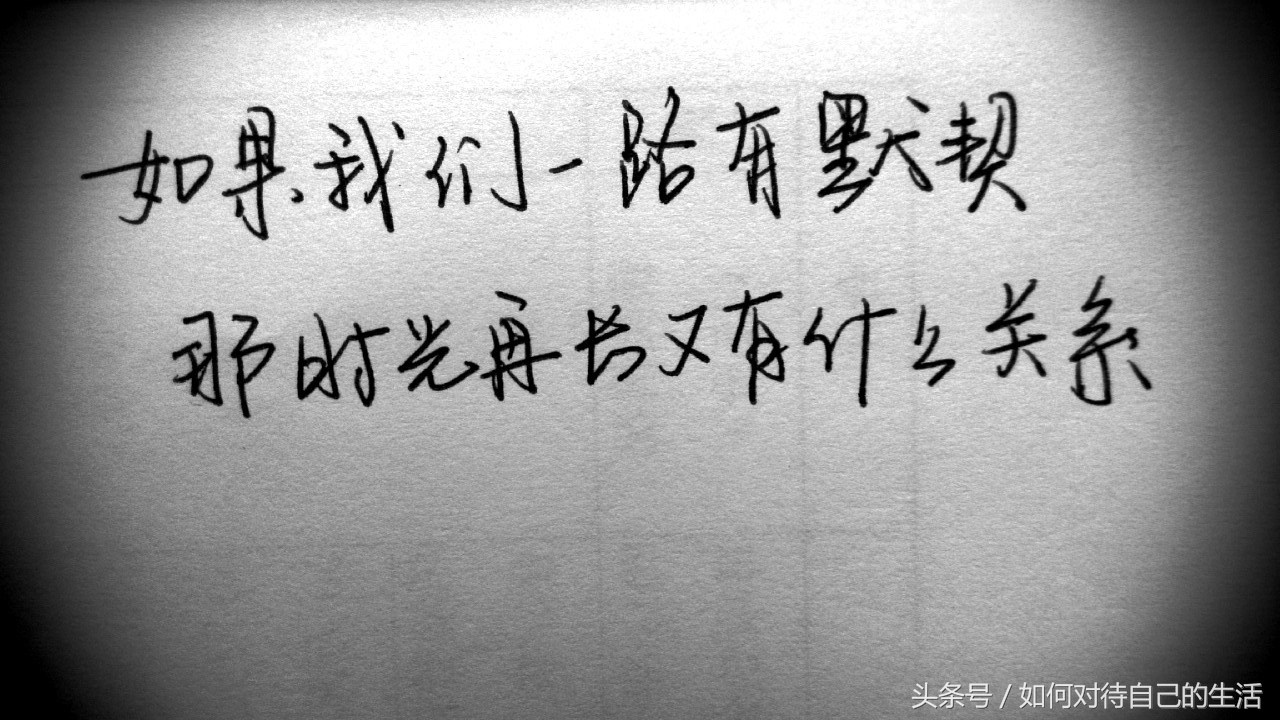 如果我们一路有默契
那时光再长又有什么关系
头条号 / 如何对待自己的生活